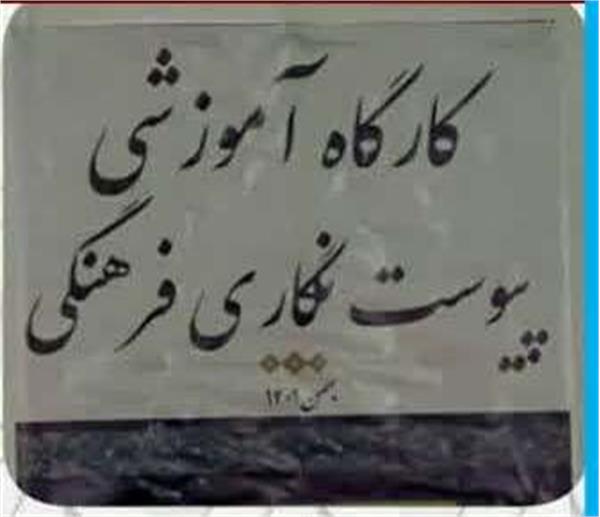 کارگاه آموزشی
پیوست نگاری فرهنگی
بهمن ۱۴۰۱